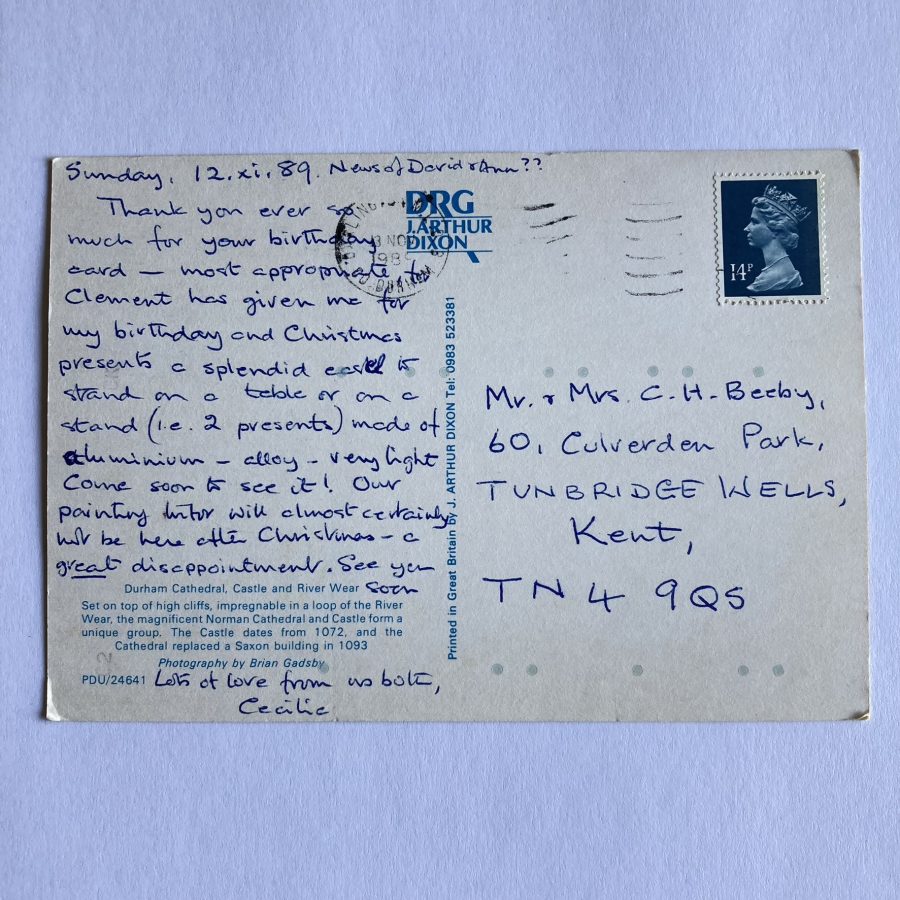 Sunday, 12.xi.89. News of David & Ann??
Thank you ever so
much for your birthday
card — most appropriate &
Clement has given me for
my birthday and Christmas
presents a splendid easel to
stand on a table or on a
stand (i.e. 2 presents) made of
aluminium – alloy – very light
Come soon to see it! Our
painting tutor will almost certainly
not be here after Christmas – a
great disappointment. See you
soon
Durham Cathedral, Castle and River Wear
Set on top of high cliffs, impregnable in a loop of the River
Wear, the magnificent Norman Cathedral and Castle form a
unique group. The Castle dates from 1072, and the
Cathedral replaced a Saxon building in 1093
Photography by Brian Gadsby
PDU/24641
Lots of love from us both,
Cecilia
DRG
J. ARTHUR
DIXON
NOV
198
DURHAM
Printed in Great Britain by J. ARTHUR DIXON Tel: 0983 523381
14P
Mr. & Mrs. C. H. Beeby,
60, Culverden Park,
TUNBRIDGE WELLS,
Kent,
TN4 9QS